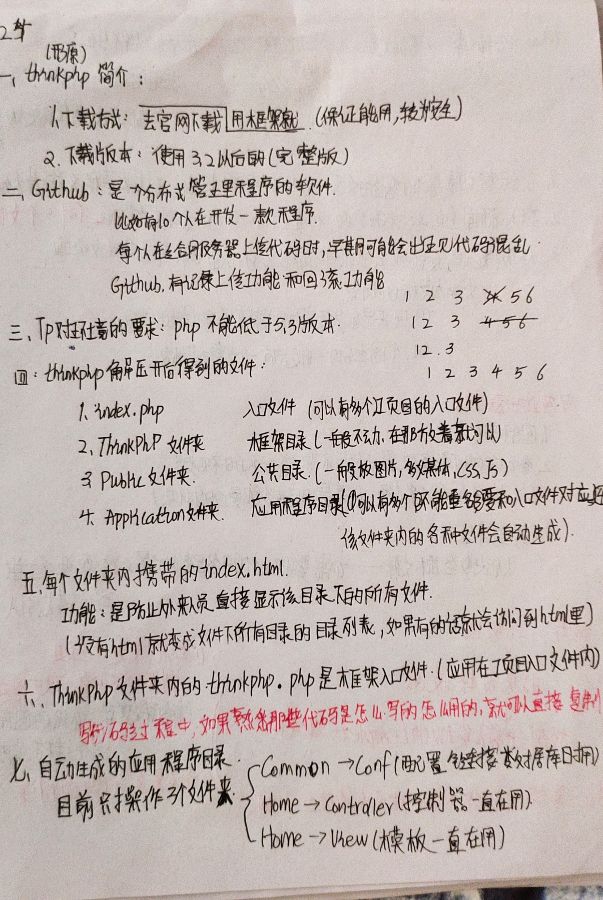 (形源)
一、thinkphp 简介:
1、下载方式: 去官网下载 用框架就 (保证能用,较为安全)
2、下载版本: 使用3.2以后的(完整版)
二、Github: 是一个分布式管理程序的软件.
比如有10个人在开发一款程序.
每个人在适合用服务器上传代码时,早期可能会出现代码混乱.
Github,有记录上传功能和回滚功能
1 2 3 4 5 6
三、Tp对环境的要求: php 不能低于5.3版本.
1 2 3 4 5 6
12.3
四: thinkphp解压开后得到的文件:
1 2 3 4 5 6
1. index.php 入口文件 (可以有多个工项目的入口文件)
2. ThinkPhP 文件夹 框架目录(一般不动,在那放着就可以)
3. Public 文件夹. 公共目录.(一般放图片,多媒体,css,js)
4. Application文件夹. 应用程序目录(可以有多个但不能重名要和入口文件对应
该文件夹内的各种文件会自动生成).
五.每个文件夹内携带的index.html.
功能: 是防止外来人员直接显示该目录下的所有文件.
(没有html就变成文件下所有目录的目录列表, 如果有的话就会访问到html里)
六、ThinkPhp文件夹内的 thinkphp.php是框架入口文件.(应用在工项目入口文件内)
写代码过程中,如果熟悉那些代码是怎么写的怎么用的,就可以直接复制
七、自动生成的应用程序目录.
目前只操作3个文件夹
Common → Conf(配置链接数据库时用)
Home → Controller(控制器一直在用)
Home → View(模板一直在用)